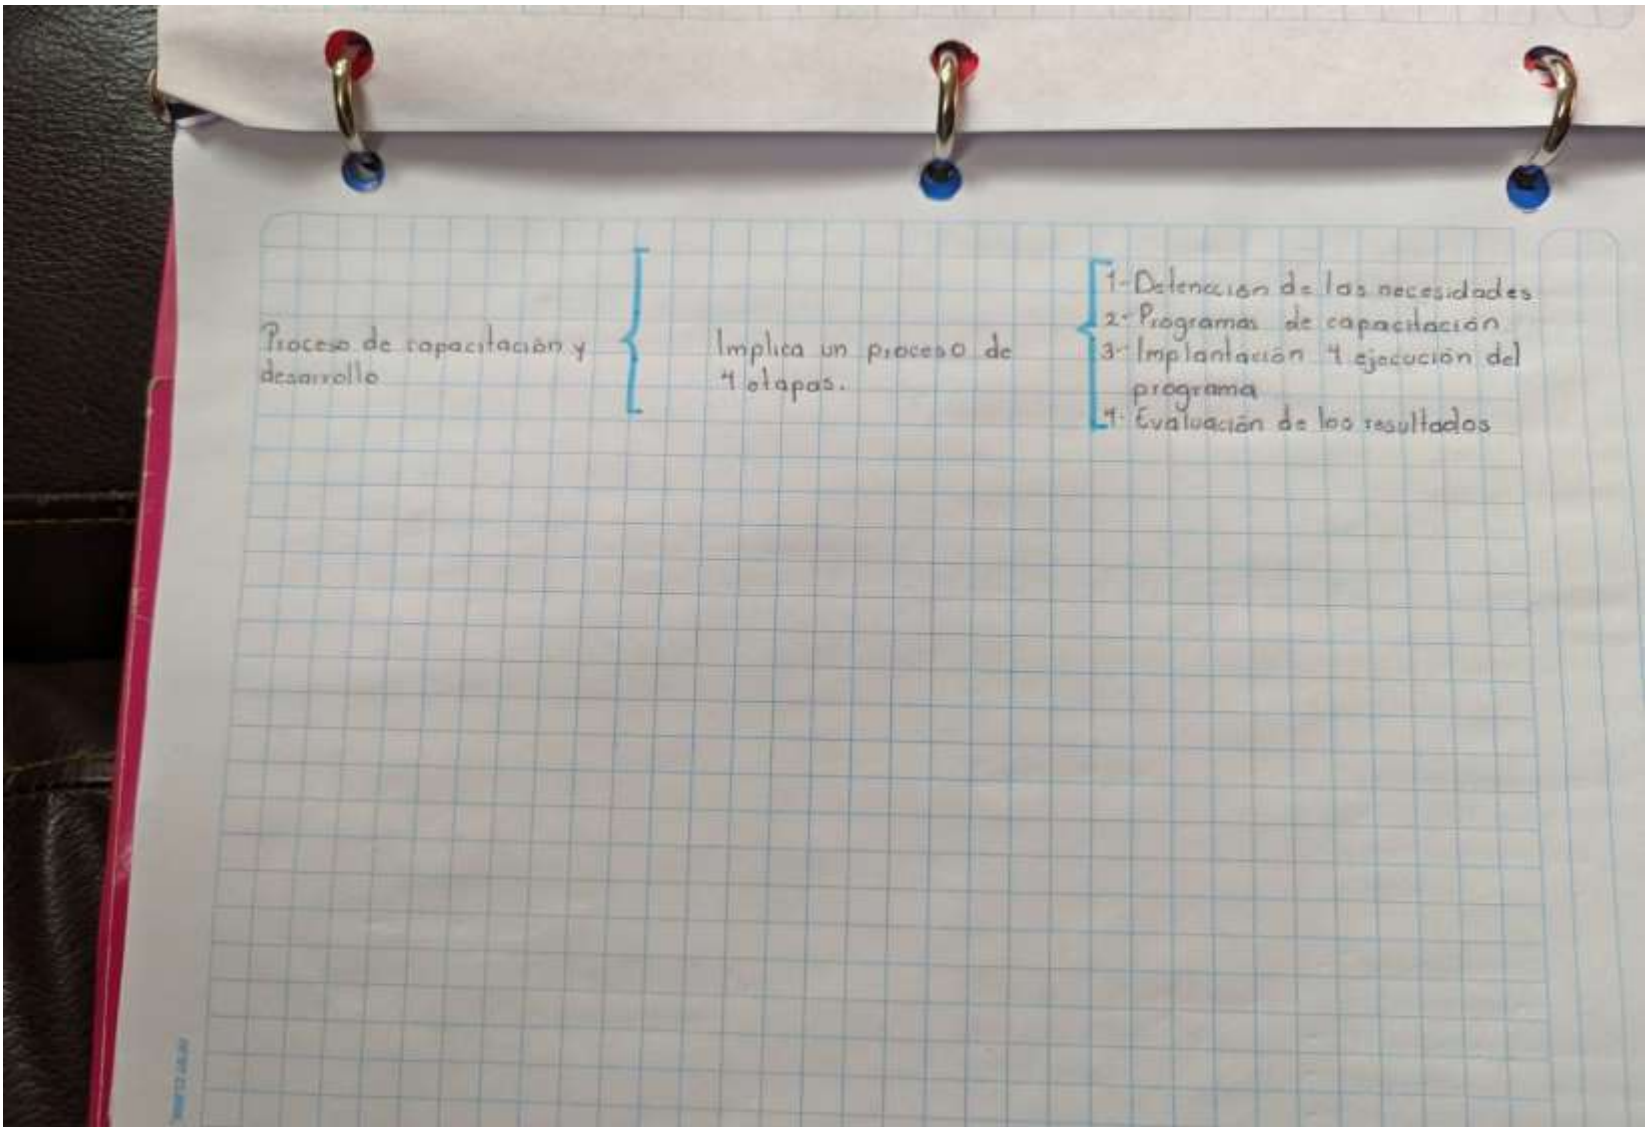 Proceso de capacitación y
desarrollo
Implica un proceso de
4 etapas.
1- Detencción de las necesidades
2- Programas de capacitación
3- Implantación y ejecución del
programa
4- Evaluación de los resultados